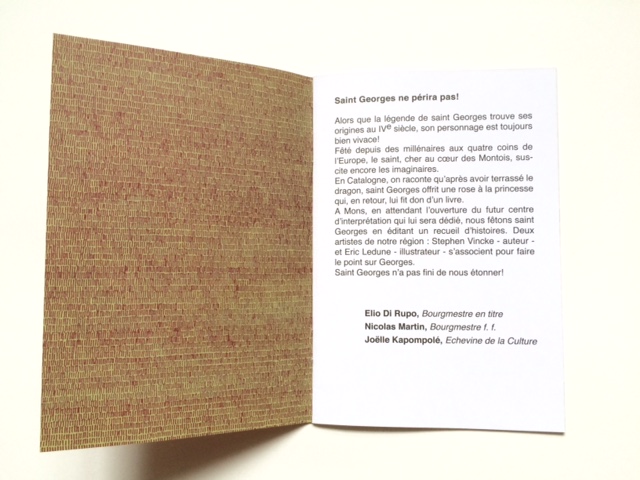 Saint Georges ne périra pas!
Alors que la légende de saint Georges trouve ses
origines au IVe siècle, son personnage est toujours
bien vivace!
Fêté depuis des millénaires aux quatre coins de
l'Europe, le saint, cher au cœur des Montois, sus-
cite encore les imaginaires.
En Catalogne, on raconte qu'après avoir terrassé le
dragon, saint Georges offrit une rose à la princesse
qui, en retour, lui fit don d'un livre.
A Mons, en attendant l'ouverture du futur centre
d'interprétation qui lui sera dédié, nous fêtons saint
Georges en éditant un recueil d'histoires. Deux
artistes de notre région : Stephen Vincke - auteur -
et Eric Ledune - illustrateur - s'associent pour faire
le point sur Georges.
Saint Georges n'a pas fini de nous étonner!
Elio Di Rupo, Bourgmestre en titre
Nicolas Martin, Bourgmestre f. f.
Joëlle Kapompolé, Echevine de la Culture